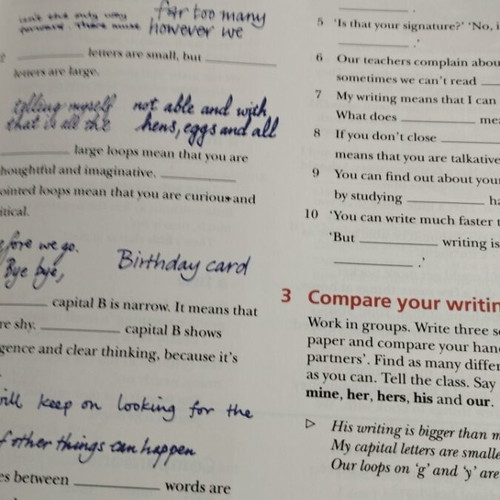 isn't the only way
forward. There must
far too many
however we
letters are small, but ____
letters are large.
telling myself
that is all the
not able and with
hens, eggs and all
____ large loops mean that you are
thoughtful and imaginative. ____
pointed loops mean that you are curious and
critical.
before we go.
Bye bye,
Birthday card
____ capital B is narrow. It means that
are shy. ____ capital B shows
and clear thinking, because it's
will keep on looking for the
of other things can happen
between ____ words are
5 'Is that your signature?' 'No, i
____.'
6 Our teachers complain abou
sometimes we can't read ____
7 My writing means that I can
What does ____ mea
8 If you don't close ____
means that you are talkative
9 You can find out about your
by studying ____ ha
10 'You can write much faster t
'But ____ writing is
____.'
3 Compare your writin
Work in groups. Write three se
paper and compare your han
partners'. Find as many differ
as you can. Tell the class. Say
mine, her, hers, his and our.
▷ His writing is bigger than m
My capital letters are smalle
Our loops on 'g' and 'y' are